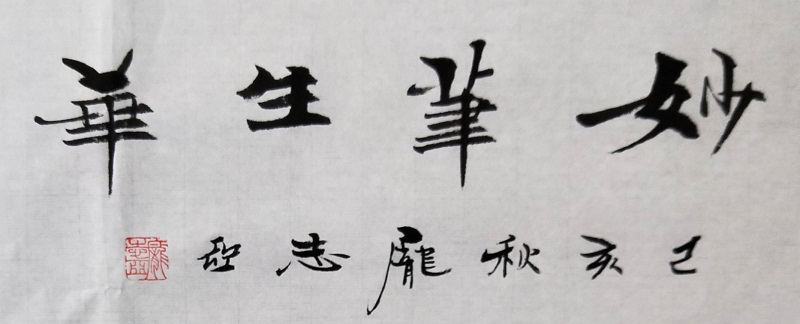 妙筆生華
己亥秋龐志